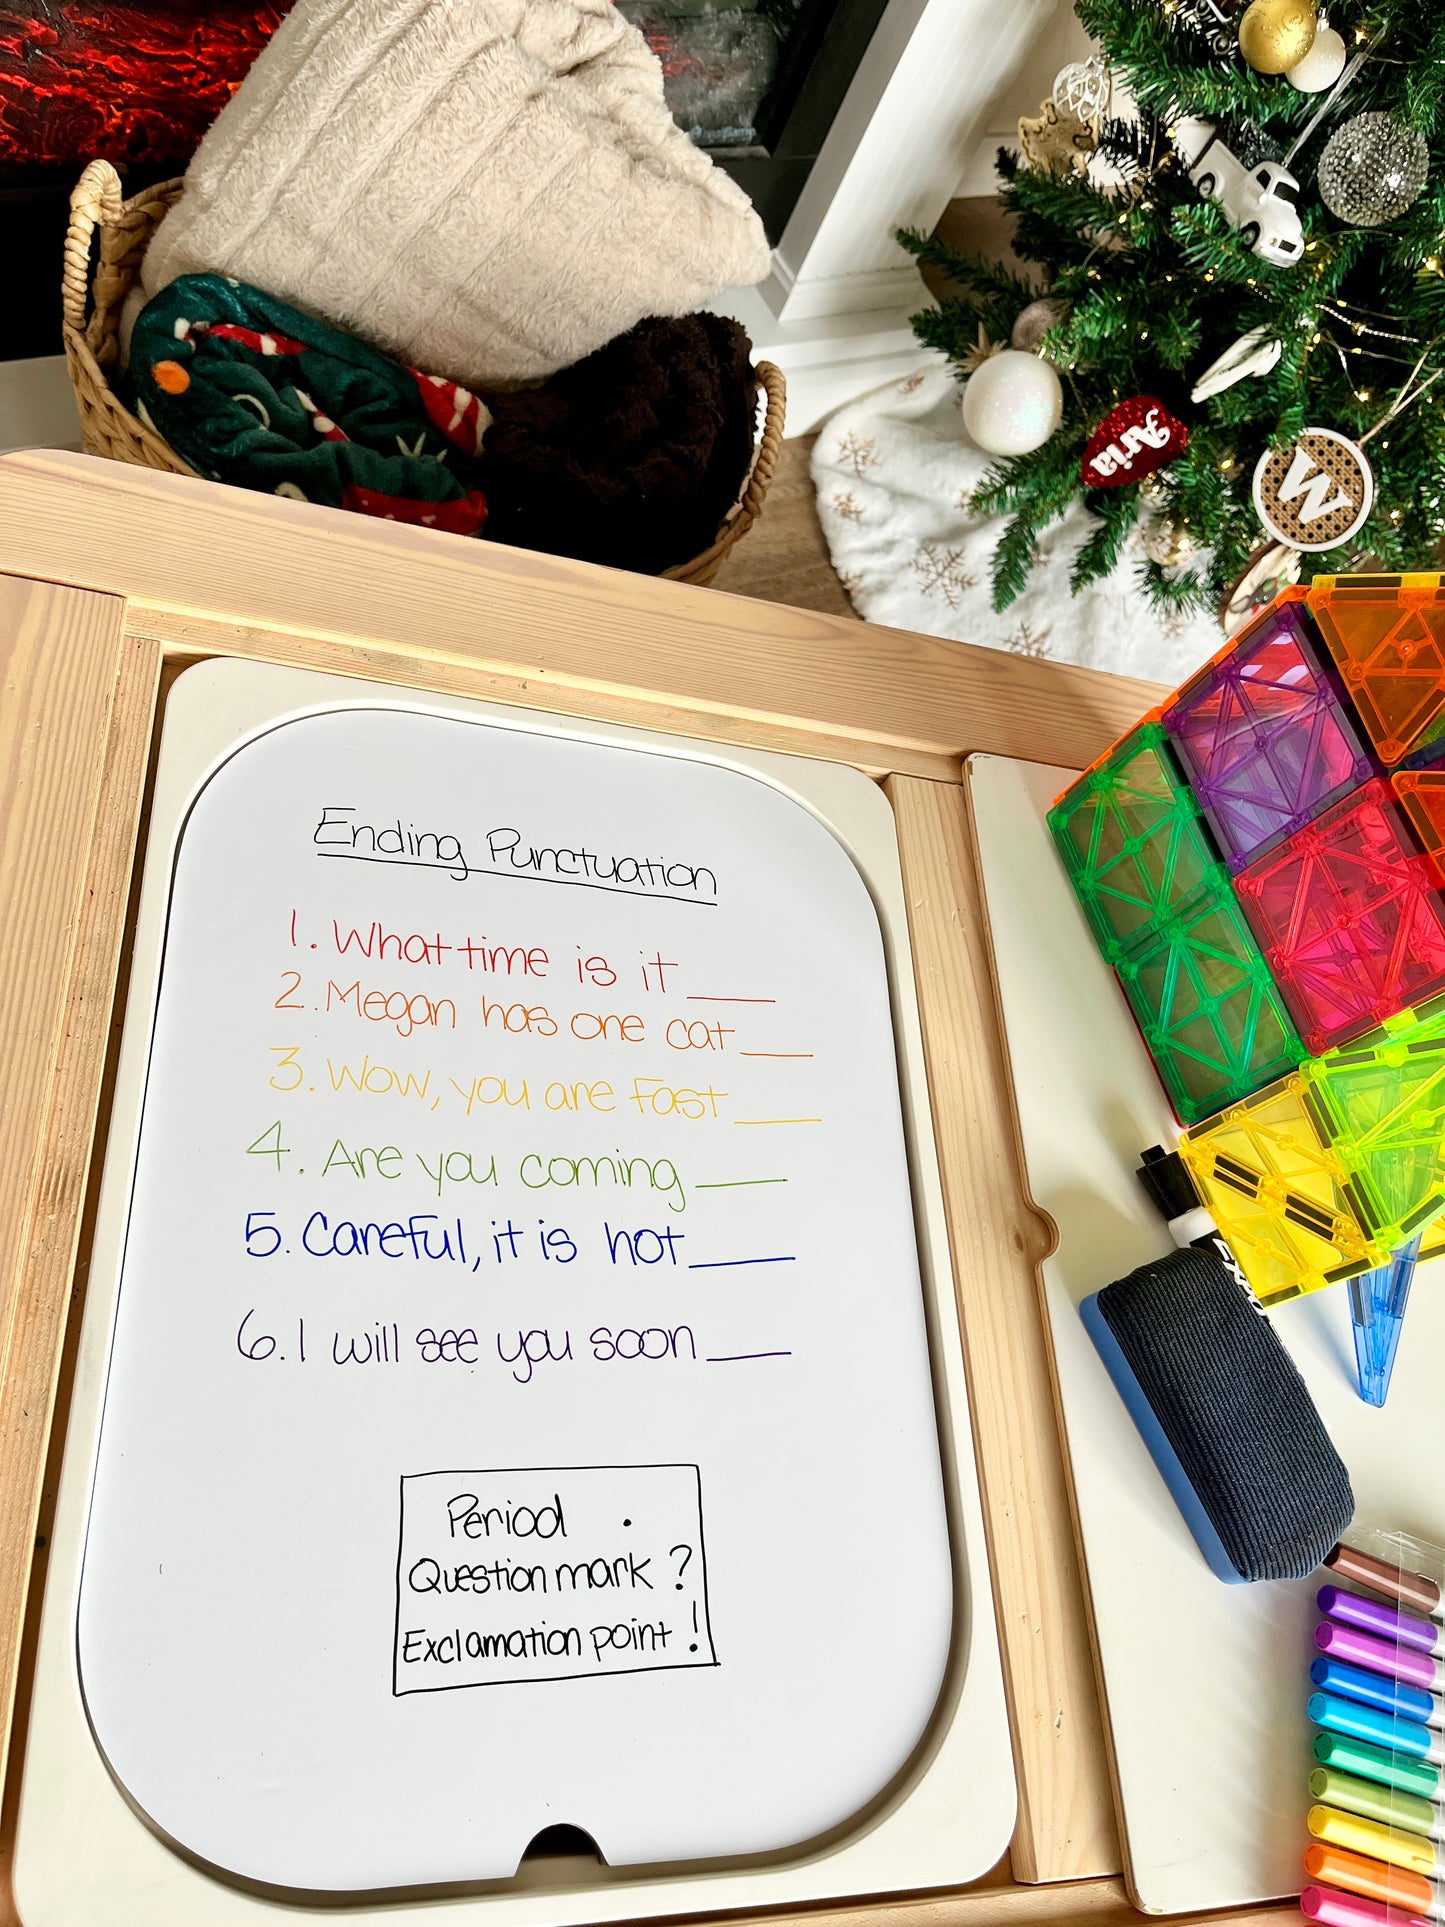 Aria
W
Ending Punctuation
1. What time is it ___
2. Megan has one cat ___
3. Wow, you are fast ___
4. Are you coming ___
5. Careful, it is hot ___
6. I will see you soon ___
Period .
Question mark ?
Exclamation point !
EXPO